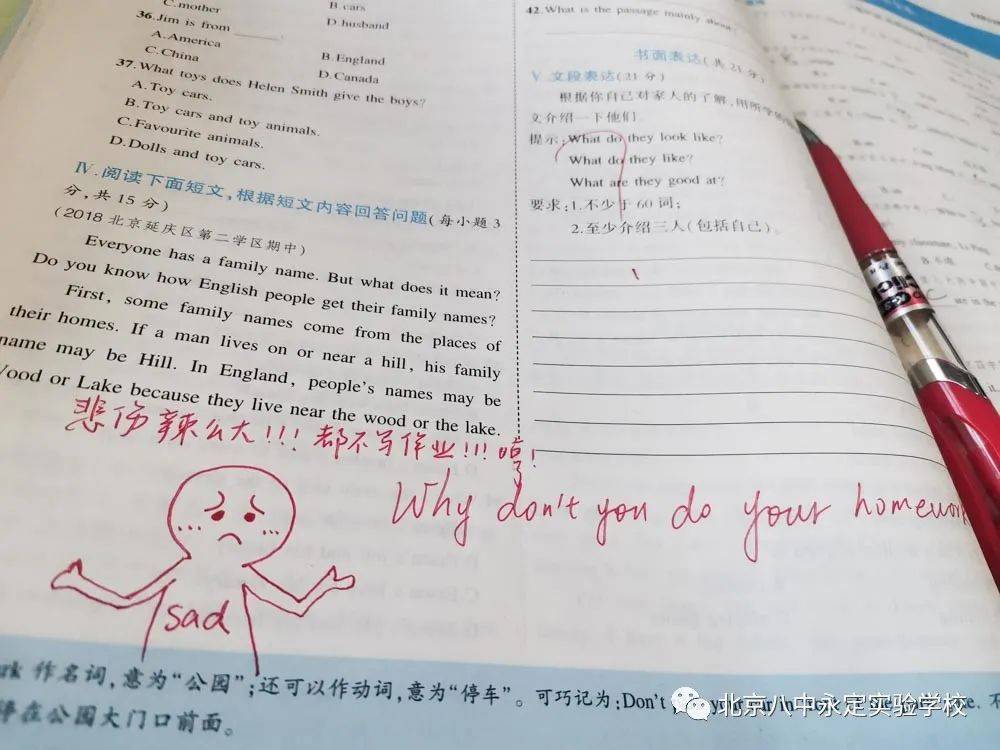 C.mother
B cars
D.husband
36.Jim is from ______.
A.America
B.England
C.China
D.Canada
37.What toys does Helen Smith give the boys?
A.Toy cars.
B.Toy cars and toy animals.
C.Favourite animals.
D.Dolls and toy cars.
Ⅳ.阅读下面短文,根据短文内容回答问题(每小题3
分,共15分)
(2018北京延庆区第二学区期中)
Everyone has a family name. But what does it mean?
Do you know how English people get their family names?
First, some family names come from the places of
their homes. If a man lives on or near a hill, his family
name may be Hill. In England, people's names may be
Wood or Lake because they live near the wood or the lake.
42.What is the passage mainly about?
书面表达(共21分)
Ⅴ.文段表达(21分)
根据你自己对家人的了解,用所学
文介绍一下他们.
提示:What do they look like?
What do they like?
What are they good at?
要求:1.不少于60词;
2.至少介绍三人(包括自己)。
悲伤辣么大!!!都不写作业!!!
Why don't you do your homework
sad
作名词,意为“公园”;还可以作动词,意为“停车”。可巧记为:Don't
在公园大门口前面。
北京八中永定实验学校